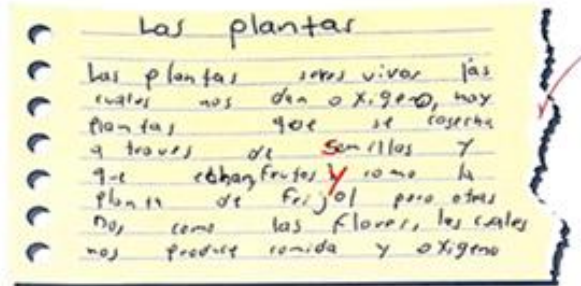 Las plantas
Las plantas seres vivos las
cuales nos dan oxigeno, hay
plantas que se cosecha
a traves de semillas y
que echan, frutos y como la
planta de frijol pero otras
no, como las flores, las cuales
nos produce comida y oxigeno